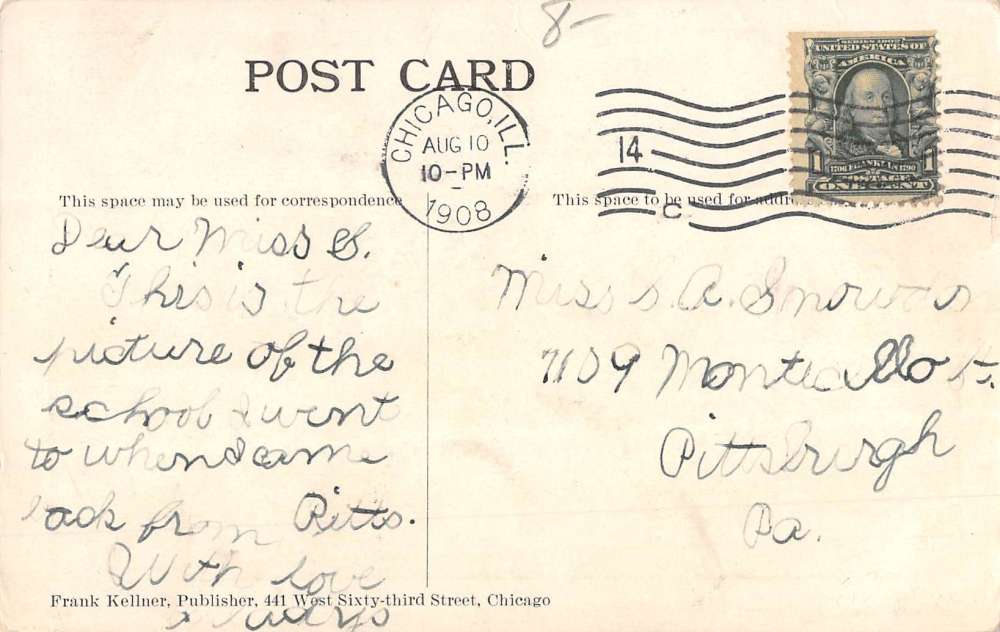 8-
POST CARD
CHICAGO, ILL.
AUG 10
10-PM
1908
14
C
SERIES 1902
UNITED STATES OF
AMERICA
1
1706 FRANKLIN 1790
1
POSTAGE
ONE CENT
This space may be used for correspondence
Dear Miss S.
This is the
picture of the
school I went
to when I came
back from Pitts.
With love
always
This space to be used for address
Miss S. A. Snowden
7109 Monticello St.
Pittsburgh
Pa.
Frank Kellner, Publisher, 441 West Sixty-third Street, Chicago